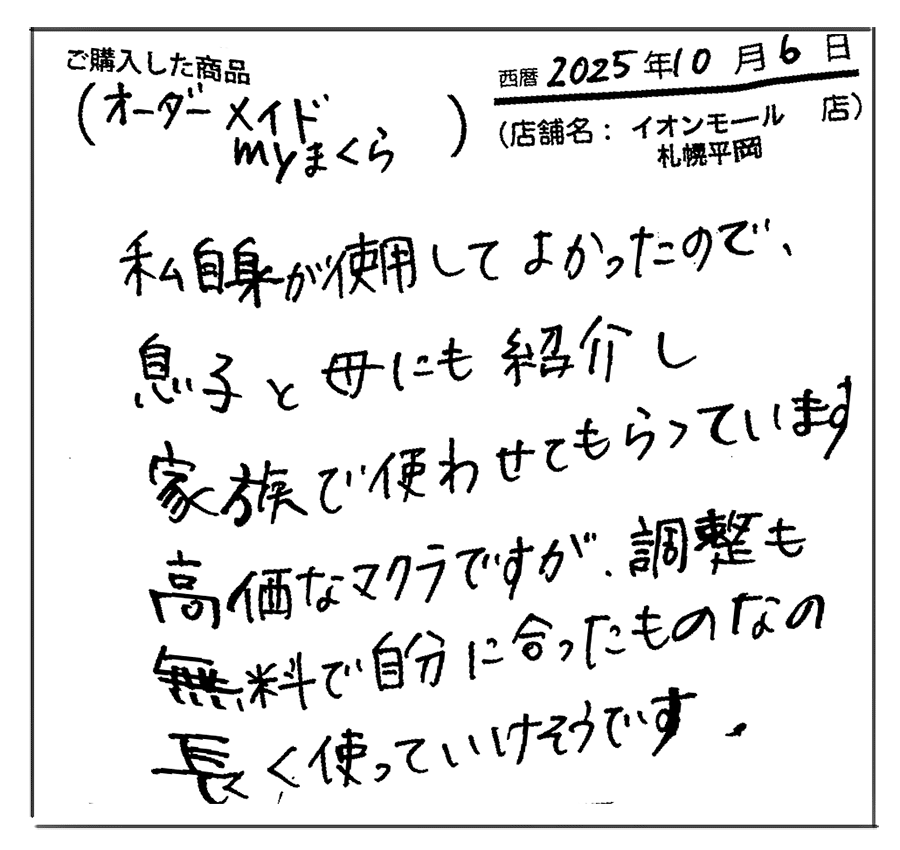 ご購入した商品
西暦 2025年10月6日
(オーダーメイド
myまくら)
(店舗名: イオンモール 店)
札幌平岡
私自身が使用してよかったので、
息子と母にも紹介し
家族で使わせてもらっています
高価なマクラですが、調整も
無料で自分に合ったものなの
長く使っていけそうです.